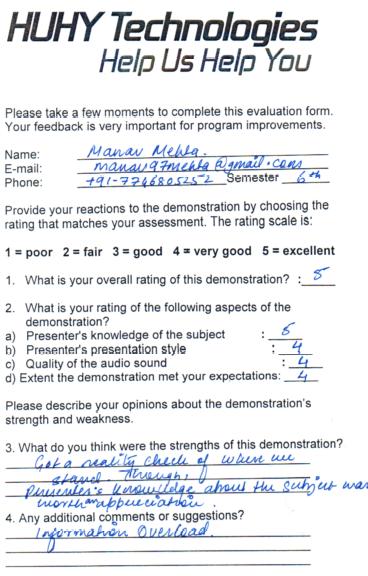 HUHY Technologies
Help Us Help You
Please take a few moments to complete this evaluation form.
Your feedback is very important for program improvements.
Name: Manav Mehta.
E-mail: manav97mehta@gmail.com
Phone: +91-7746805252 Semester 6th
Provide your reactions to the demonstration by choosing the
rating that matches your assessment. The rating scale is:
1 = poor 2 = fair 3 = good 4 = very good 5 = excellent
1. What is your overall rating of this demonstration? : 5
2. What is your rating of the following aspects of the
demonstration?
a) Presenter's knowledge of the subject : 5
b) Presenter's presentation style : 4
c) Quality of the audio sound : 4
d) Extent the demonstration met your expectations: 4
Please describe your opinions about the demonstration's
strength and weakness.
3. What do you think were the strengths of this demonstration?
Got a reality check of where we
stand. Through,
Presenter's knowledge about the subject was
worth appreciation.
4. Any additional comments or suggestions?
Information Overload.